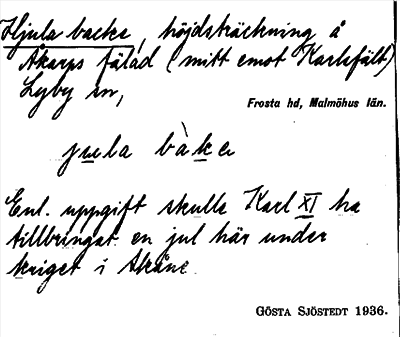 Hjula backe, höjdsträckning å
Åkarps fälad (mitt emot Karlsfält)
Lyby sn,
Frosta hd, Malmöhus län.
jula bàke
Enl. uppgift skulle Karl XI ha
tillbringat en jul här under
kriget i Skåne.
GÖSTA SJÖSTEDT 1936.